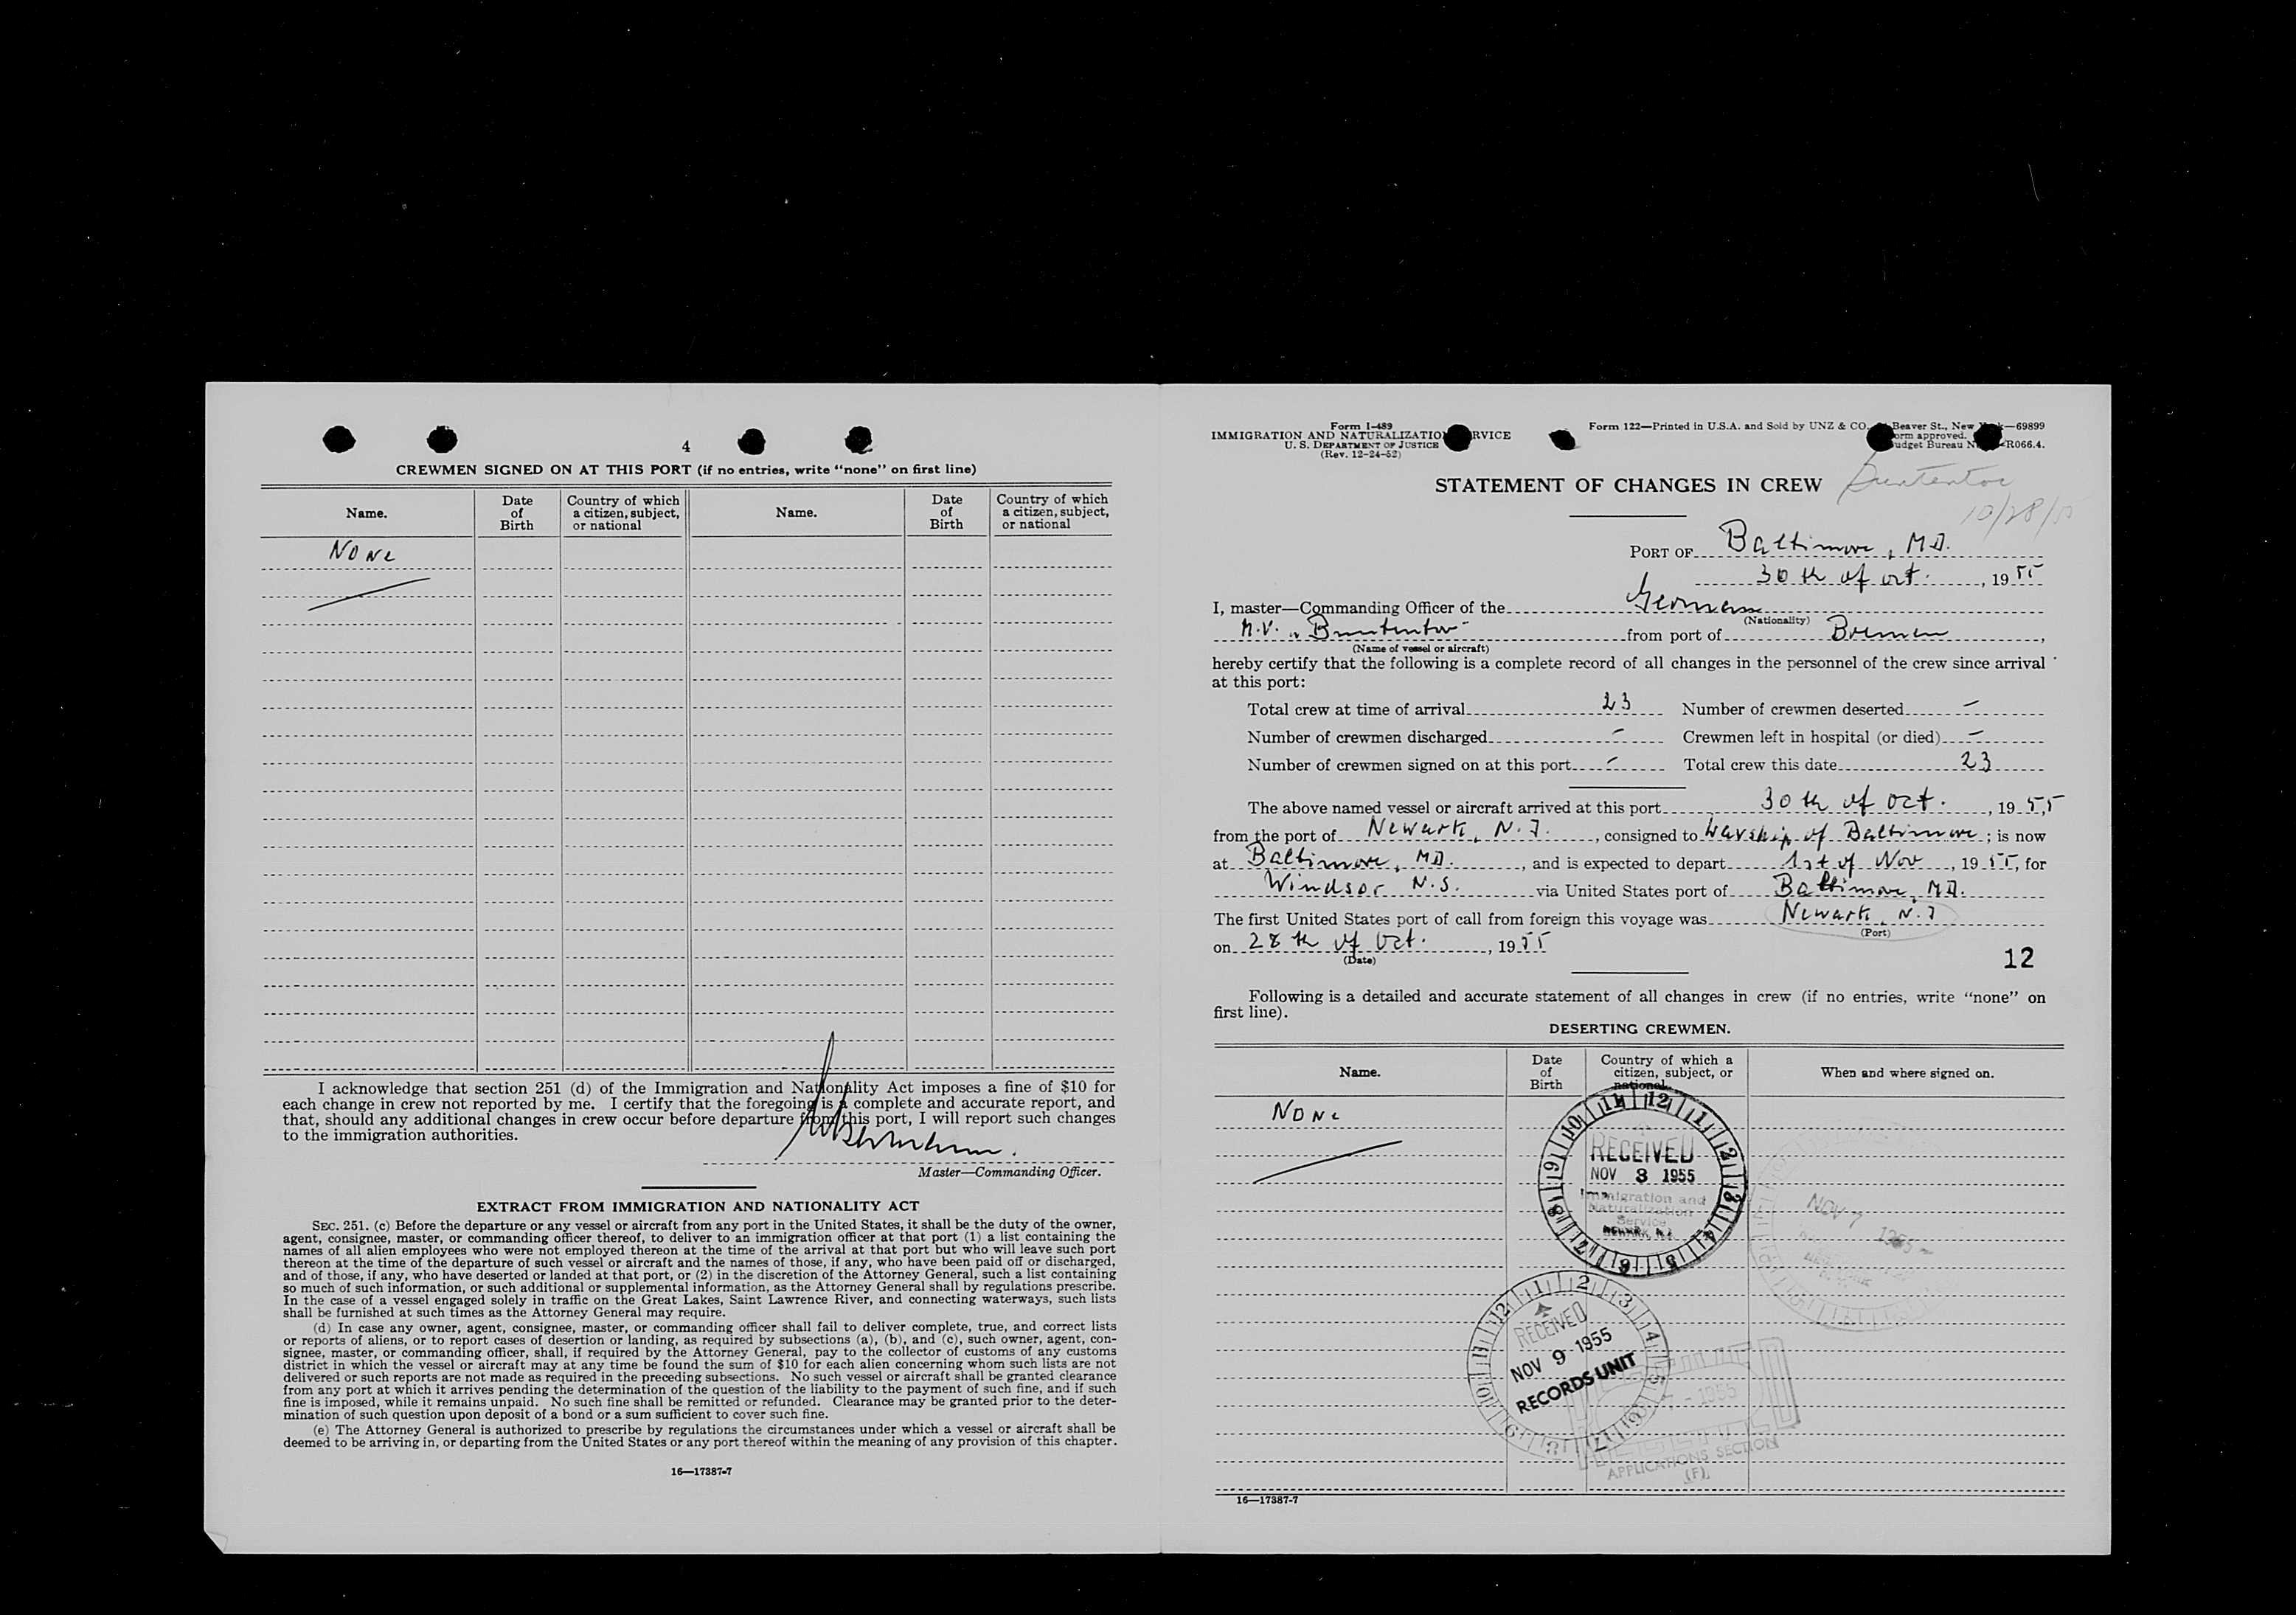 4
CREWMEN SIGNED ON AT THIS PORT (if no entries, write "none" on first line)
Name.
Date of Birth
Country of which a citizen, subject, or national
Name.
Date of Birth
Country of which a citizen, subject, or national
None
I acknowledge that section 251 (d) of the Immigration and Nationality Act imposes a fine of $10 for
each change in crew not reported by me. I certify that the foregoing is a complete and accurate report, and
that, should any additional changes in crew occur before departure from this port, I will report such changes
to the immigration authorities.
Master—Commanding Officer.
EXTRACT FROM IMMIGRATION AND NATIONALITY ACT
SEC. 251. (c) Before the departure or any vessel or aircraft from any port in the United States, it shall be the duty of the owner,
agent, consignee, master, or commanding officer thereof, to deliver to an immigration officer at that port (1) a list containing the
names of all alien employees who were not employed thereon at the time of the arrival at that port but who will leave such port
thereon at the time of the departure of such vessel or aircraft and the names of those, if any, who have been paid off or discharged,
and of those, if any, who have deserted or landed at that port, or (2) in the discretion of the Attorney General, such a list containing
so much of such information, or such additional or supplemental information, as the Attorney General shall by regulations prescribe.
In the case of a vessel engaged solely in traffic on the Great Lakes, Saint Lawrence River, and connecting waterways, such lists
shall be furnished at such times as the Attorney General may require.
(d) In case any owner, agent, consignee, master, or commanding officer shall fail to deliver complete, true, and correct lists
or reports of aliens, or to report cases of desertion or landing, as required by subsections (a), (b), and (c), such owner, agent, con-
signee, master, or commanding officer, shall, if required by the Attorney General, pay to the collector of customs of any customs
district in which the vessel or aircraft may at any time be found the sum of $10 for each alien concerning whom such lists are not
delivered or such reports are not made as required in the preceding subsections. No such vessel or aircraft shall be granted clearance
from any port at which it arrives pending the determination of the question of the liability to the payment of such fine, and if such
fine is imposed, while it remains unpaid. No such fine shall be remitted or refunded. Clearance may be granted prior to the deter-
mination of such question upon deposit of a bond or a sum sufficient to cover such fine.
(e) The Attorney General is authorized to prescribe by regulations the circumstances under which a vessel or aircraft shall be
deemed to be arriving in, or departing from the United States or any port thereof within the meaning of any provision of this chapter.
16—17387-7
Form I-489
IMMIGRATION AND NATURALIZATIO RVICE
U. S. DEPARTMENT OF JUSTICE
(Rev. 12-24-52)
Form 122—Printed in U.S.A. and Sold by UNZ & CO., Beaver St., New k—69899
orm approved.
udget Bureau N R066.4.
STATEMENT OF CHANGES IN CREW
Buntentor
10/28/55
PORT OF Baltimore, MD.
30th of oct., 1955
I, master—Commanding Officer of the German
(Nationality)
M.V. "Buntentor" from port of Bremen,
(Name of vessel or aircraft)
hereby certify that the following is a complete record of all changes in the personnel of the crew since arrival
at this port:
Total crew at time of arrival 23 Number of crewmen deserted —
Number of crewmen discharged — Crewmen left in hospital (or died) —
Number of crewmen signed on at this port — Total crew this date 23
The above named vessel or aircraft arrived at this port 30th of oct., 1955
from the port of Newark, N.J., consigned to Warship of Baltimore; is now
at Baltimore, MD., and is expected to depart 1st of Nov, 1955, for
Windsor N.S. via United States port of Baltimore, MD.
The first United States port of call from foreign this voyage was Newark, N.J
(Port)
on 28th of Oct., 1955
(Date)
12
Following is a detailed and accurate statement of all changes in crew (if no entries, write "none" on
first line).
DESERTING CREWMEN.
Name.
Date of Birth
Country of which a citizen, subject, or national
When and where signed on.
None
RECEIVED
NOV 3 1955
Immigration and
Naturalization
Service
NEWARK, N.J.
NOV 7 1955
RECEIVED
NOV 9 1955
RECORDS UNIT
7 - 1955
APPLICATIONS SECTION
(F)
16—17387-7